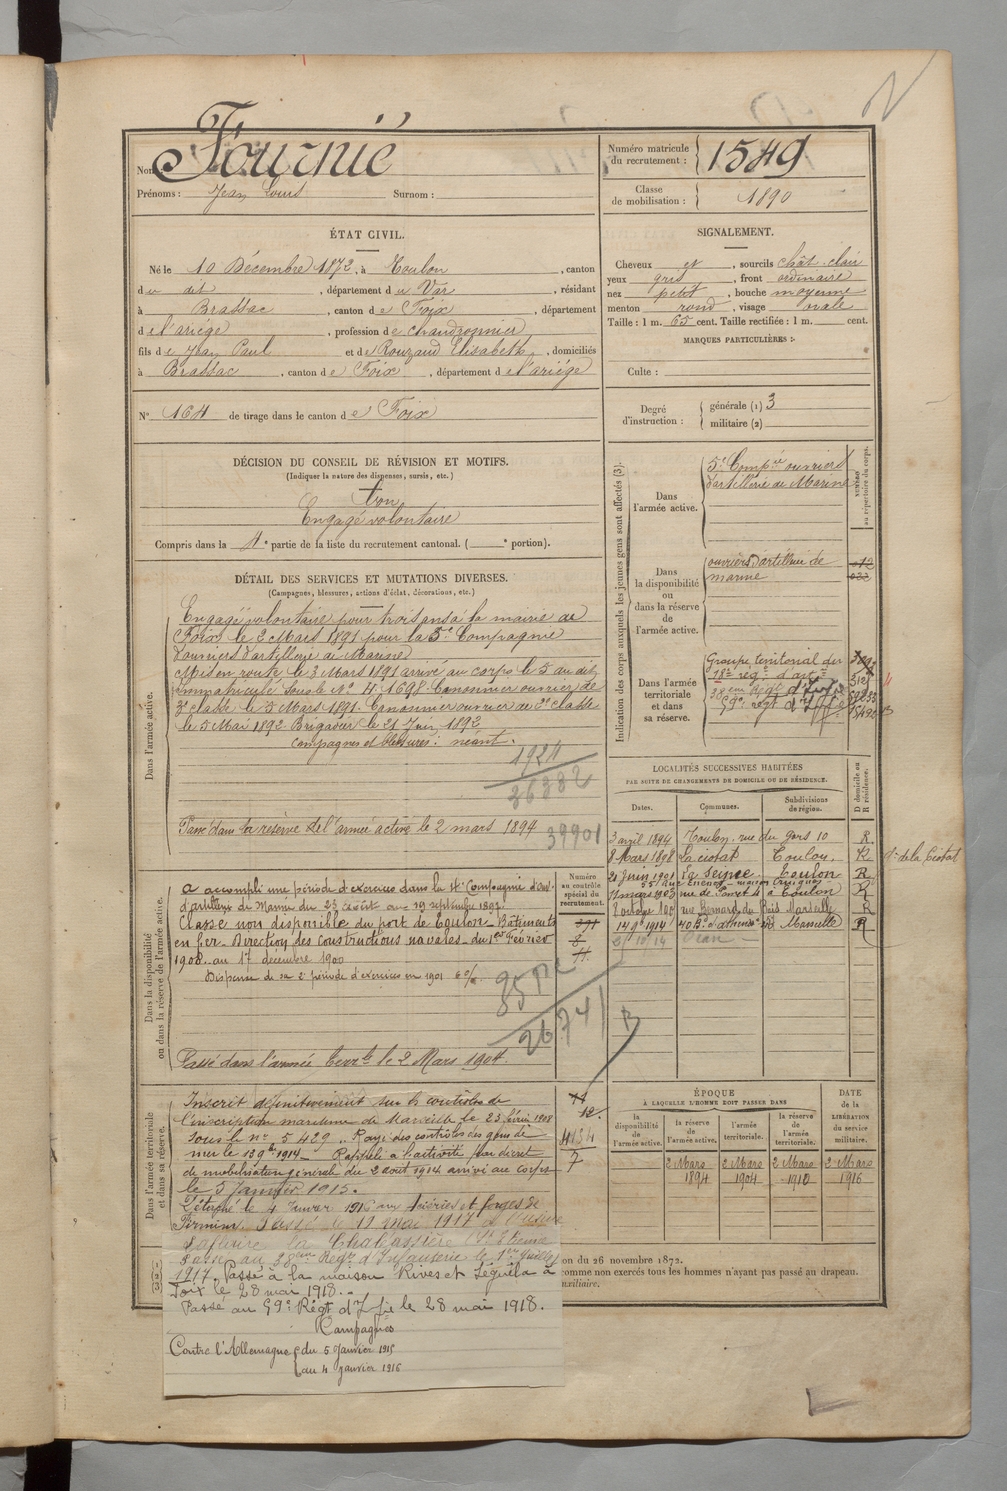 Nom : Fournié
Prénoms : Jean Louis Surnom :
Numéro matricule du recrutement : 1549
Classe de mobilisation : 1890
ÉTAT CIVIL.
Né le 10 Décembre 1872, à Toulon, canton
du dit, département du Var, résidant
à Brassac, canton de Foix, département
de l'ariège, profession de chaudronnier
fils de Jean Paul et de Rouzaud Elisabeth, domiciliés
à Brassac, canton de Foix, département de l'ariège
N° 164 de tirage dans le canton de Foix
SIGNALEMENT.
Cheveux et, sourcils chât. clair
yeux gris, front ordinaire
nez petit, bouche moyenne
menton rond, visage ovale
Taille : 1 m. 65 cent. Taille rectifiée : 1 m. cent.
MARQUES PARTICULIÈRES :
Culte :
Degré d'instruction : générale (1) 3
militaire (2)
DÉCISION DU CONSEIL DE RÉVISION ET MOTIFS.
(Indiquer la nature des dispenses, sursis, etc.)
bon
Engagé volontaire
Compris dans la 4e partie de la liste du recrutement cantonal. ( e portion).
DÉTAIL DES SERVICES ET MUTATIONS DIVERSES.
(Campagnes, blessures, actions d'éclat, décorations, etc.)
Dans l'armée active.
Engagé volontaire pour trois ans à la mairie de
Foix le 2 Mars 1891 pour la 5e Compagnie
d'ouvriers d'artillerie de Marine
Mis en route le 3 Mars 1891 arrivé au corps le 5 au dit
immatriculé sous le N° 4.1698 Canonnier ouvrier de
3e classe le 5 Mars 1891. Canonnier ouvrier de 2e classe
le 5 Mai 1892 Brigadier le 21 Juin 1892
Campagnes et blessures : néant.
1924
36382
Passé dans la réserve de l'armée active le 2 mars 1894
39901
Indication des corps auxquels les jeunes gens sont affectés (3).
NUMÉRO au répertoire du corps.
Dans l'armée active.
5e Compie ouvriers
d'artillerie de Marine
Dans la disponibilité ou dans la réserve de l'armée active.
ouvriers d'artillerie de
marine
Dans l'armée territoriale et dans sa réserve.
Groupe territorial du
18e régt d'art
38eme Régt d'Infie
59e régt d'Infie
LOCALITÉS SUCCESSIVES HABITÉES
PAR SUITE DE CHANGEMENTS DE DOMICILE OU DE RÉSIDENCE.
Dates. Communes. Subdivisions de région. D domicile ou R résidence.
3 avril 1894 Toulon, rue du Gars 10 R.
8 Mars 1898 La ciotat Toulon. R gie de la Ciotat
21 Juin 1901 la Seyne Toulon R
Toulon R
Marseille R
14 9e 1914 Marseille R
Dans la disponibilité ou dans la réserve de l'armée active.
Numéro au contrôle spécial du recrutement.
A accompli une période d'exercices dans la 4e Compagnie d'ouv.
d'artillerie de Marine du 23 Août au 19 septembre 1897
Classe non disponible du port de Toulon. Bâtiments
en fer. Direction des constructions navales. du 1er Février
1900 au 17 décembre 1900
Dispensé de sa 2e période d'exercices en 1901
26741
Passé dans l'armée terrle le 2 Mars 1904.
Dans l'armée territoriale et dans sa réserve.
Inscrit définitivement sur les contrôles de
l'inscription maritime de Marseille le 25 février 1908
sous le n° 5429. Rayé des contrôles des gens de
mer le 13 9bre 1914 Rappelé à l'activité par décret
de mobilisation générale du 2 aout 1914 arrivé au corps
le 5 Janvier 1915.
Détaché le 4 Janvier 1916 aux Aciéries et forges de
Firminy. Passé le 19 mai 1917 à l'usine
la Chaléassière St Etienne
Passé au 38eme Régt d'Infanterie le 1er Juillet
1917. Passé à la maison Rives et Séguéla à
Foix le 28 mai 1918.
Passé au 59e Régt d'Ifie le 28 mai 1918.
Campagnes
Contre l'Allemagne du 5 Janvier 1915
au 4 janvier 1916
ÉPOQUE
À LAQUELLE L'HOMME DOIT PASSER DANS
la disponibilité de l'armée active. la réserve de l'armée active. l'armée territoriale. la réserve de l'armée territoriale.
DATE de la LIBÉRATION du service militaire.
2 Mars 1894 2 Mars 1904 2 Mars 1910 2 Mars 1916
on du 26 novembre 1872.
comme non exercés tous les hommes n'ayant pas passé au drapeau.
uxiliaire.